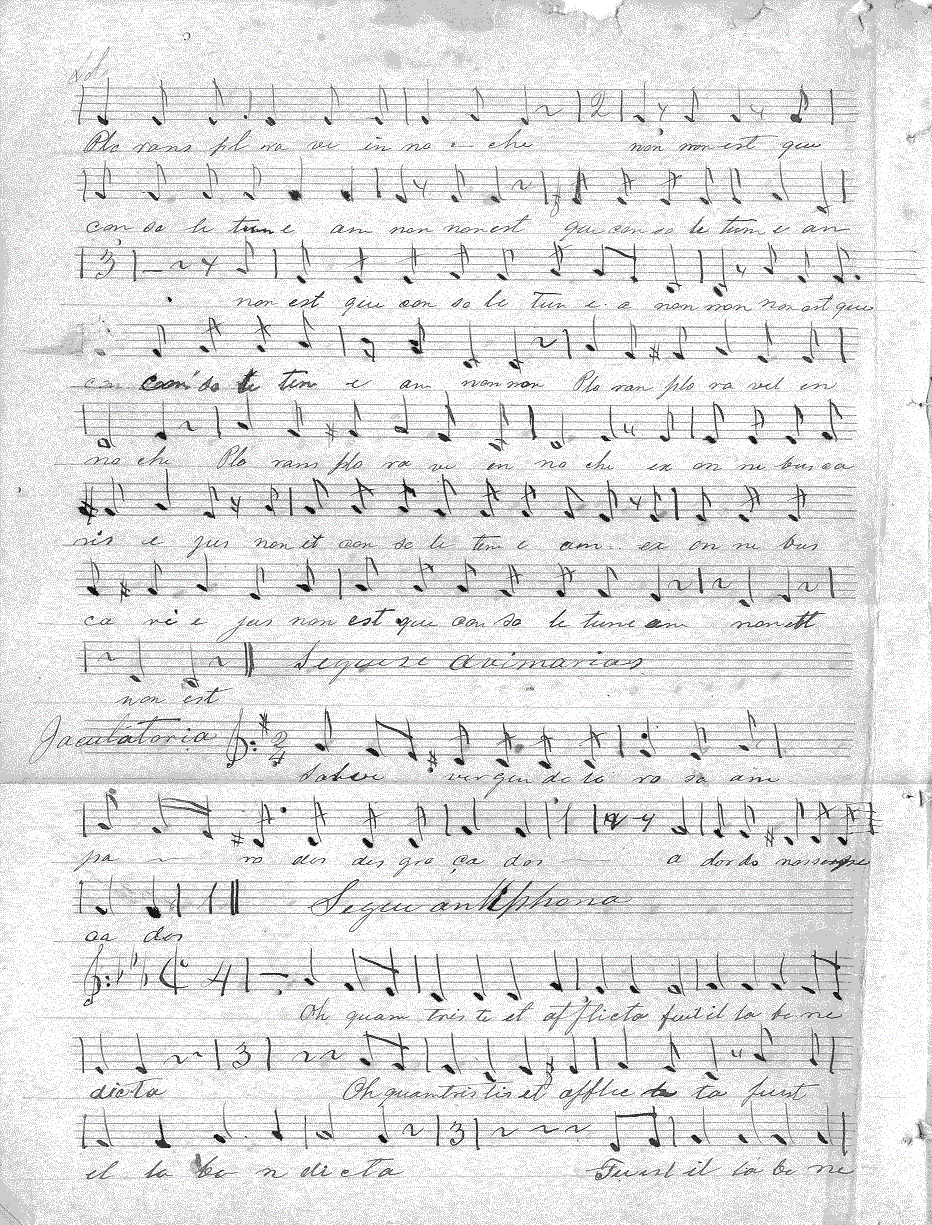 Plo rans pl ra ve in no e che non non est que
con so le tum e am non non est que con so le tum e am
non est que con so le tun e a non non non est que
con so le tem e am non non Plo ran plo ra vel en
no che Plo rans plo ra ve en no che ex on ne bus ca
ris e jus non et con so le tem e am ex on ne bus
ca ri e jus non est que con so le tum e am non est
Seguese avimarias
non est
Jaculatoria 2/4
Salve vergen do lo ro sa am
pa ro dos des gra ça dos a dor do nosso
ca dos
Segue antiphona
Oh quam tris te et afflicta fuit il la be ne
dicta Oh quam tris tis et afflic ta fuist
el la be n dicta Fuist il la be ne